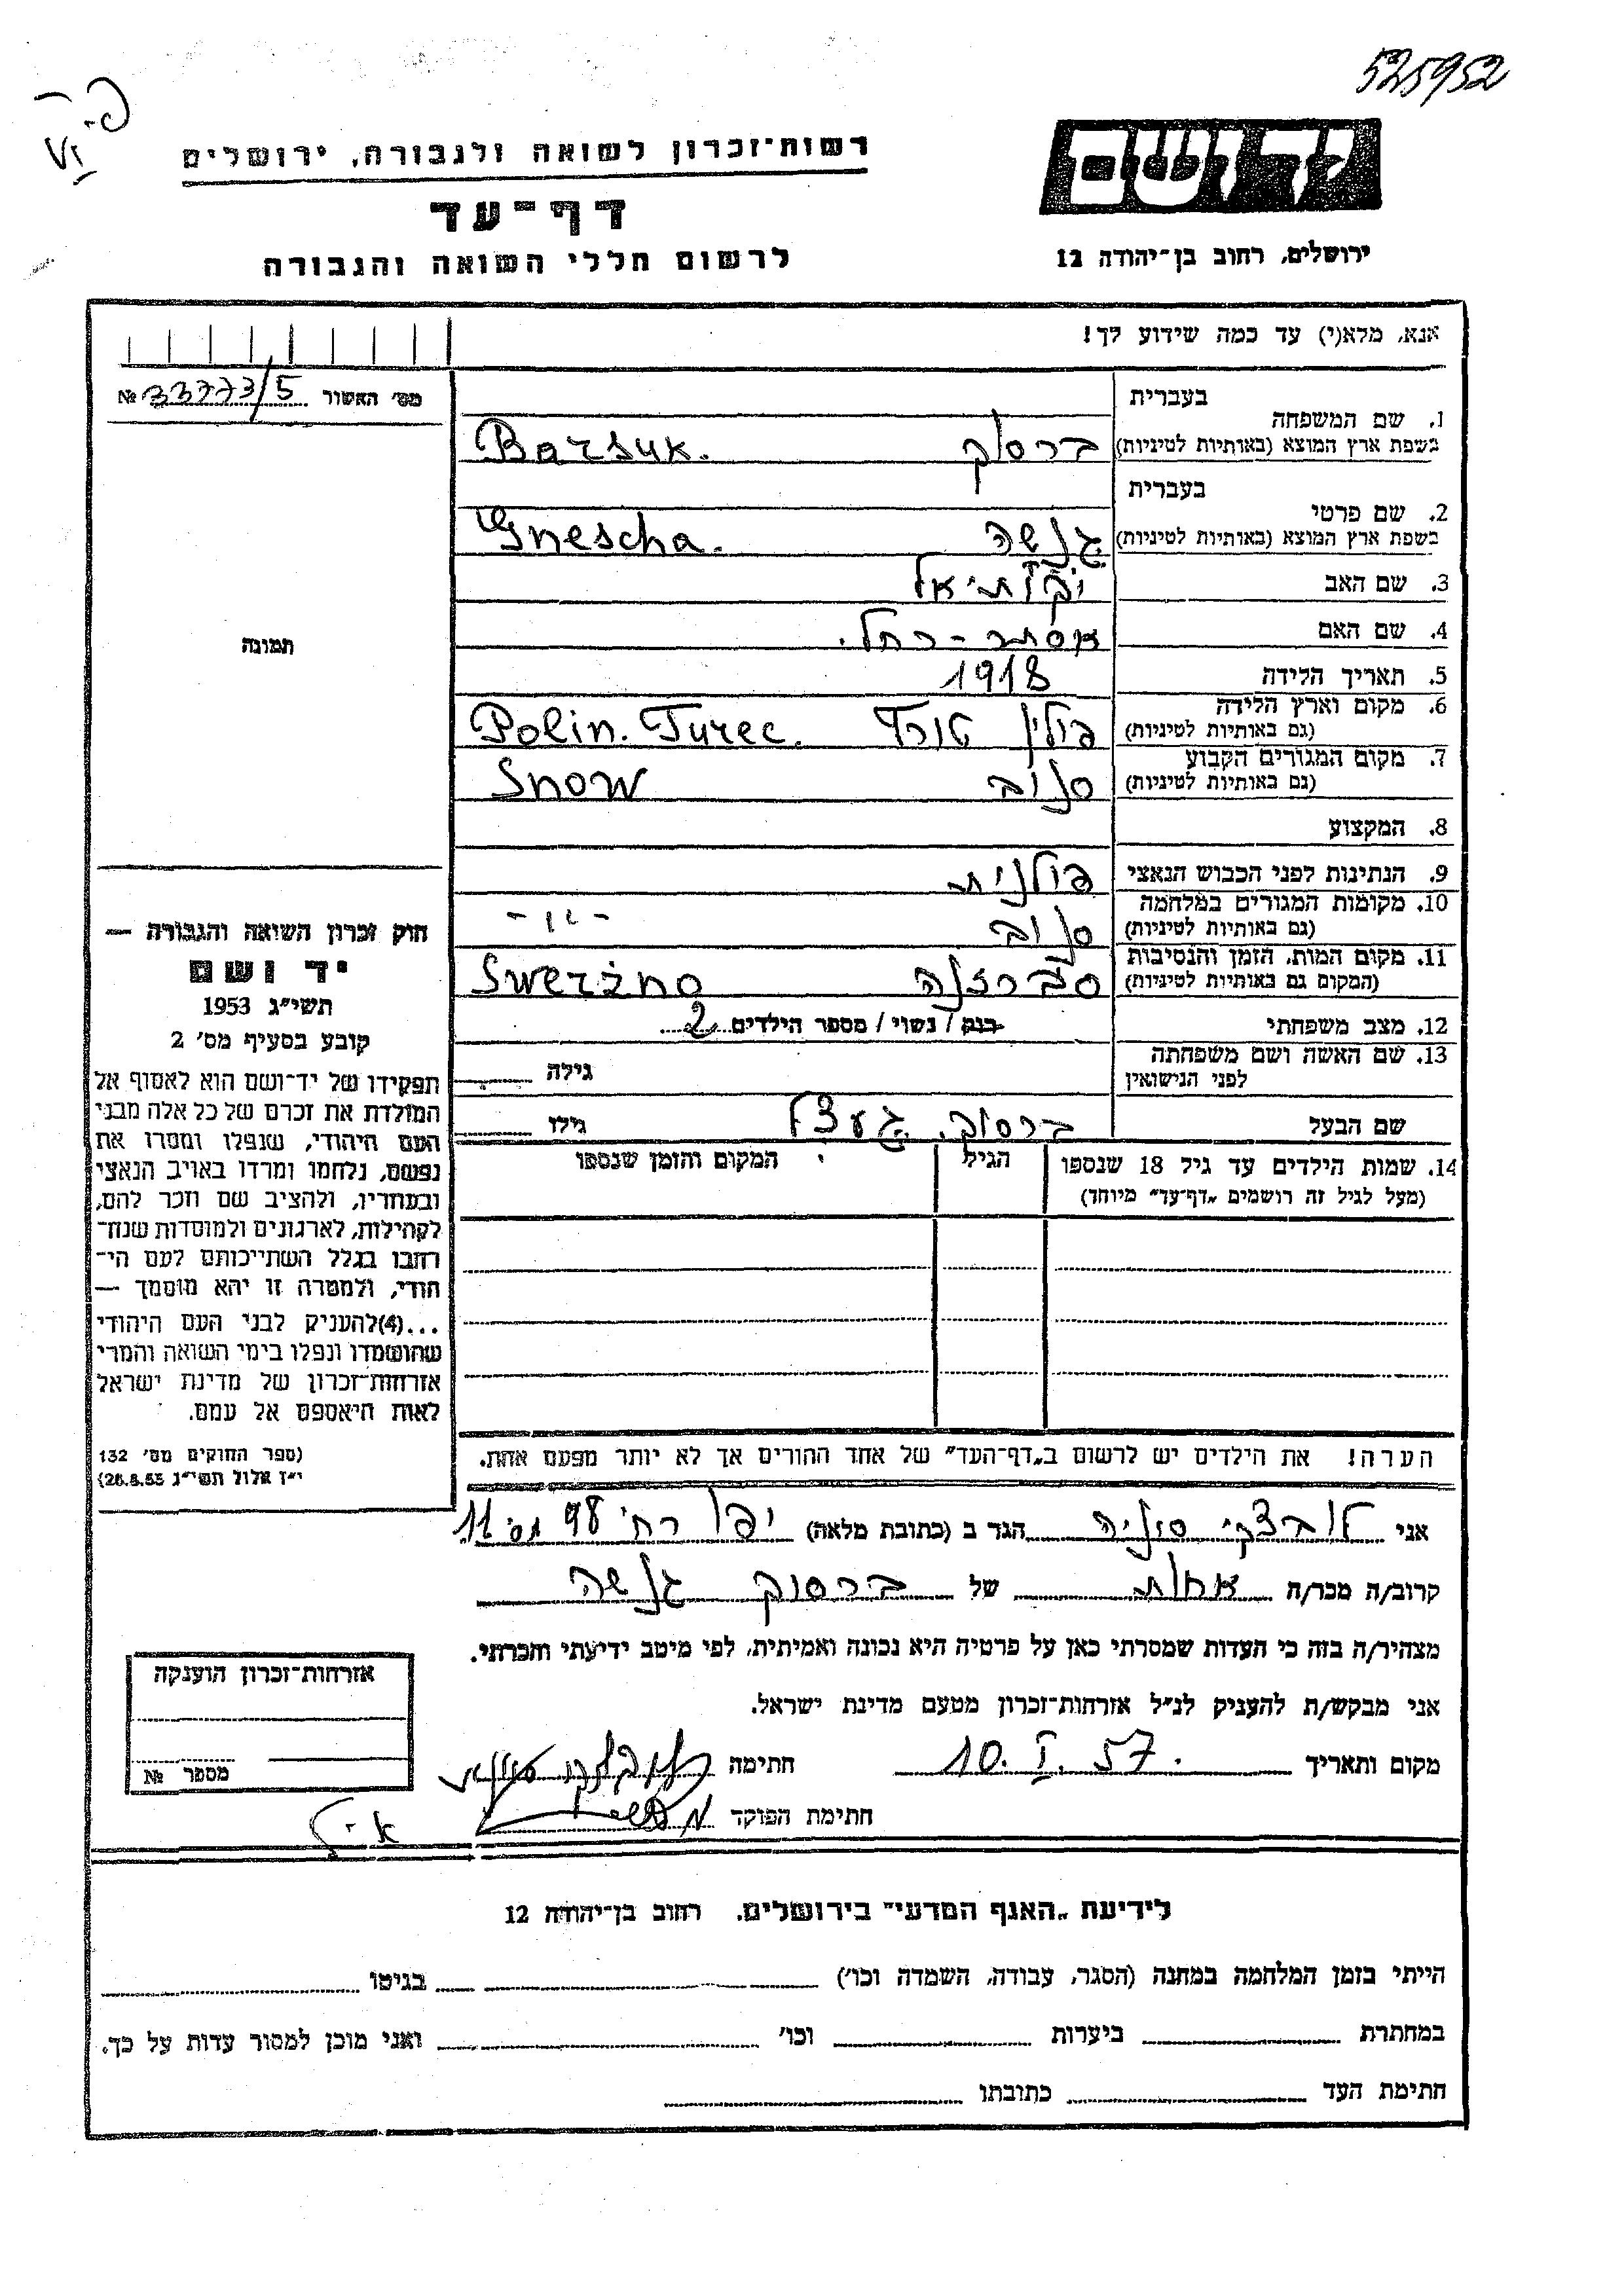 525952
יד ושם
רשות־זכרון לשואה ולגבורה, ירושלים
דף־עד
לרשום חללי השואה והגבורה
ירושלים, רחוב בן־יהודה 12
אנא, מלא(י) עד כמה שידוע לך!
מס׳ האשור № 33773/5
בעברית
1. שם המשפחה
בשפת ארץ המוצא (באותיות לטיניות) ברסוק Barsuk.
בעברית
2. שם פרטי
בשפת ארץ המוצא (באותיות לטיניות) גנשה Gnescha.
3. שם האב יקותיאל
4. שם האם אסתר - רחל.
5. תאריך הלידה 1918
6. מקום וארץ הלידה
(גם באותיות לטיניות) פולין טורץ Polin. Turec.
7. מקום המגורים הקבוע
(גם באותיות לטיניות) סנוב Snow
8. המקצוע
9. הנתינות לפני הכבוש הנאצי פולנית
10. מקומות המגורים במלחמה
(גם באותיות לטיניות) סנוב - " -
11. מקום המות, הזמן והנסיבות
(המקום גם באותיות לטיניות) סברזנה Sweržno
12. מצב משפחתי רווק / נשוי / מספר הילדים 2
13. שם האשה ושם משפחתה
לפני הנישואין גילה
שם הבעל ברסוק געצל גילו
14. שמות הילדים עד גיל 18 שנספו הגיל המקום והזמן שנספו
(מעל לגיל זה רושמים „דף־עד״ מיוחד)
הערה! את הילדים יש לרשום ב„דף־העד״ של אחד ההורים אך לא יותר מפעם אחת.
תמונה
חוק זכרון השואה והגבורה —
יד ושם
תשי״ג 1953
קובע בסעיף מס׳ 2
תפקידו של יד־ושם הוא לאסוף אל
המולדת את זכרם של כל אלה מבני
העם היהודי, שנפלו ומסרו את
נפשם, נלחמו ומרדו באויב הנאצי
ובעוזריו, ולהציב שם וזכר להם,
לקהילות, לארגונים ולמוסדות שנח־
רבו בגלל השתייכותם לעם הי־
הודי, ולמטרה זו יהא מוסמך —
...(4)להעניק לבני העם היהודי
שהושמדו ונפלו בימי השואה והמרי
אזרחות־זכרון של מדינת ישראל
לאות היאספם אל עמם.
(ספר החוקים מס׳ 132
י״ז אלול תשי״ג 28.8.53)
אני לובצקי סוניה הגר ב (כתובת מלאה) יפו רח׳ 98 מס׳ 11
קרוב/ה מכר/ה אחות של ברסוק גנשה
מצהיר/ה בזה כי העדות שמסרתי כאן על פרטיה היא נכונה ואמיתית, לפי מיטב ידיעתי והכרתי.
אני מבקש/ת להעניק לנ״ל אזרחות־זכרון מטעם מדינת ישראל.
מקום ותאריך 10. I. 57. חתימה
חתימת הפוקד
אזרחות־זכרון הוענקה
מספר №
לידיעת „האגף המדעי״ בירושלים, רחוב בן־יהודה 12
הייתי בזמן המלחמה במחנה (הסגר, עבודה, השמדה וכו׳) בגיטו
במחתרת ביערות וכו׳ ואני מוכן למסור עדות על כך.
חתימת העד כתובתו